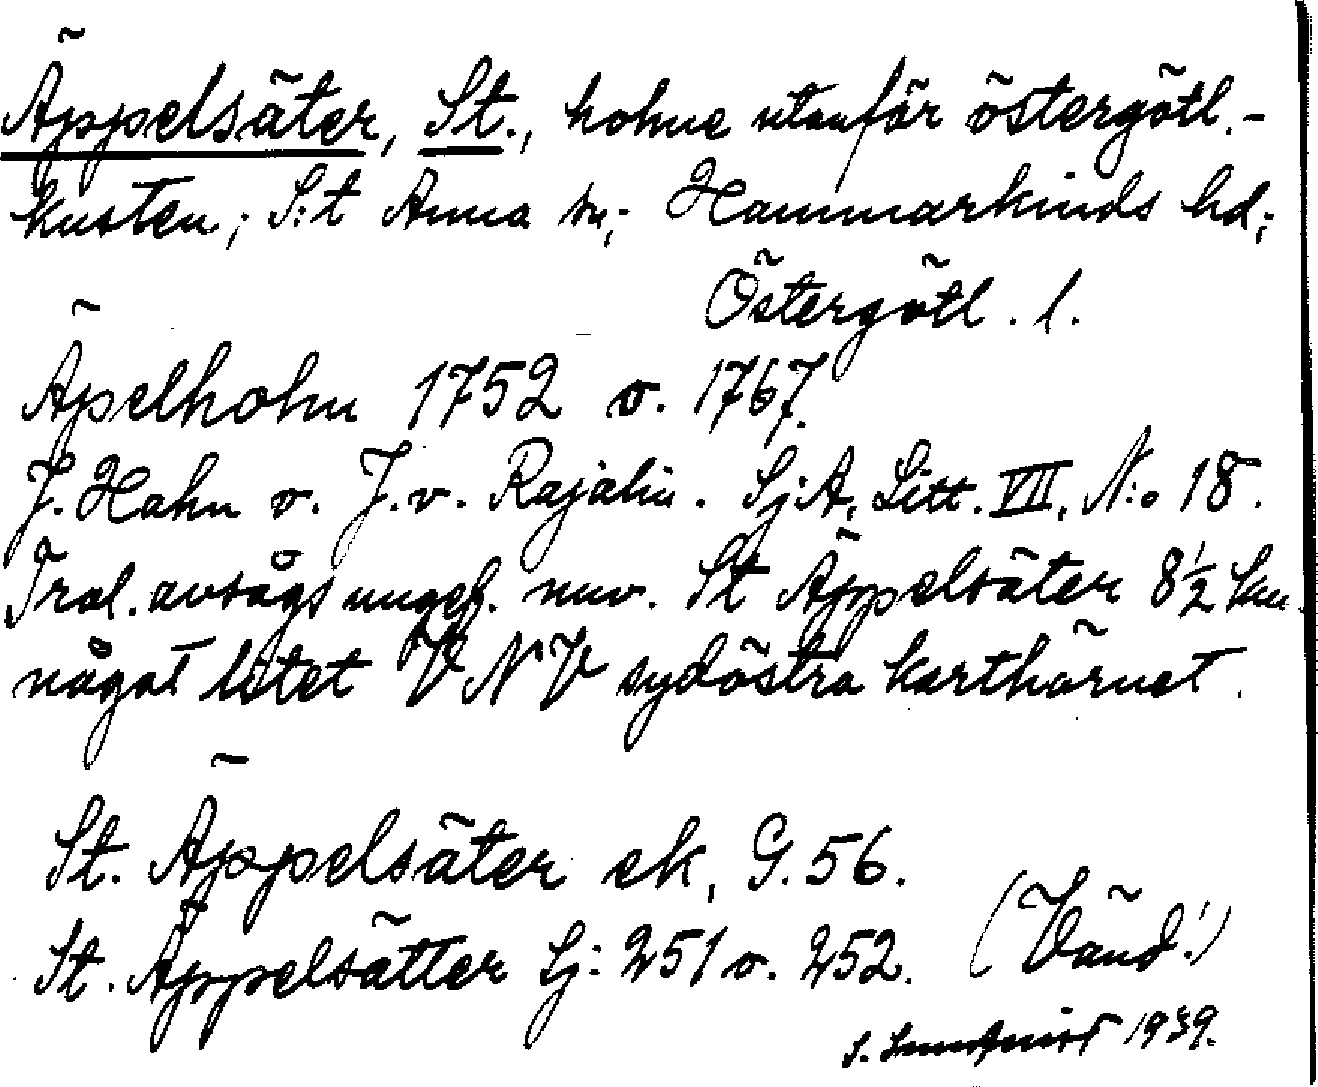 Äppelsäter, St., holme utanför östergötl.-
kusten; S:t Anna sn; Hammarkinds hd;
Östergötl. l.
Äpelholm 1752 o. 1767.
J. Hahn o. J. v. Rajalin. SjA, Litt. VII, N:o 18.
Trol. avsågs ungef. nuv. St Äppelsäter 8½ km
något litet VNV sydöstra karthörnet.
St. Äppelsäter ek, G. 56.
St. Äppelsätter Sj: 251 o. 252. (Vänd!)
S. 1939.